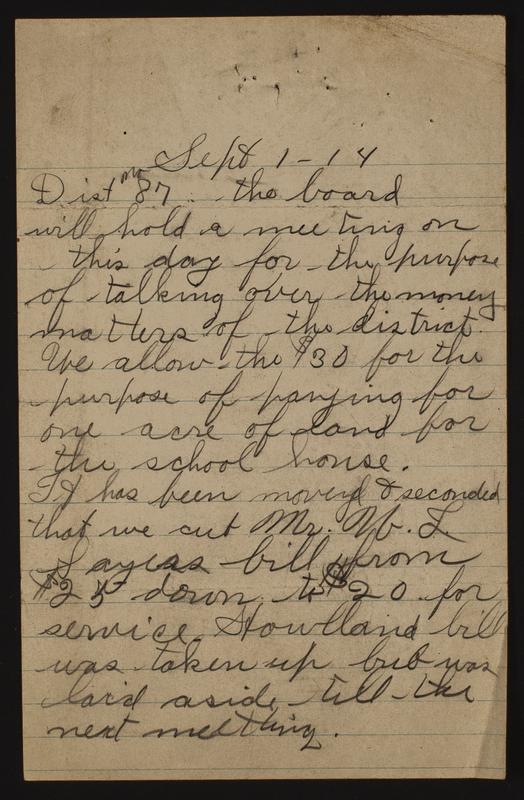 Sept 1-14
Dist no 87. the board
will hold a meeting on
this day for the purpose
of talking over the money
matters of the district.
We allow the $30 for the
purpose of paying for
one acre of land for
the school house.
It has been moveyd & seconded
that we cut Mr. W. L
Saycas bill from
$25 down to $20 for
service. Howlland bill
was taken up but was
laid aside till the
next meetting.